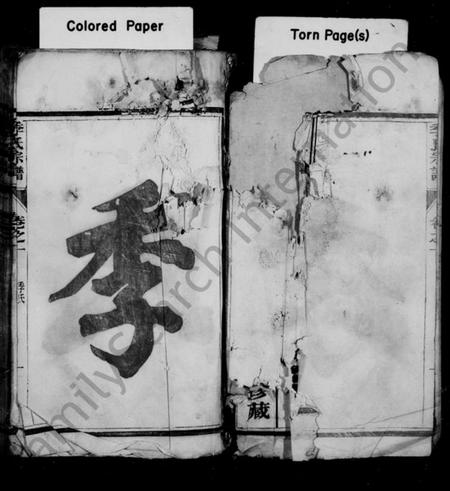 Colored Paper
Torn Page(s)
季氏宗譜
卷之一
季氏
季
珍藏
familysearch International